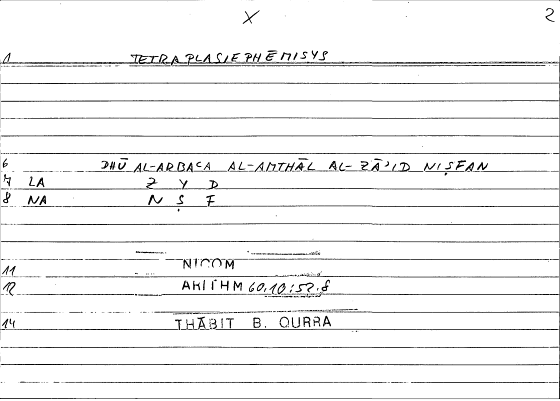 X 2
1 TETRAPLASIEPHĒMISYS
6 DHŪ AL-ARBAʿA AL-AMTHĀL AL-ZĀʾID NIṢFAN
7 LA Z Y D
8 NA N Ṣ F
11 NICOM
12 ARITHM 60.10:52.8
14 THĀBIT B. QURRA